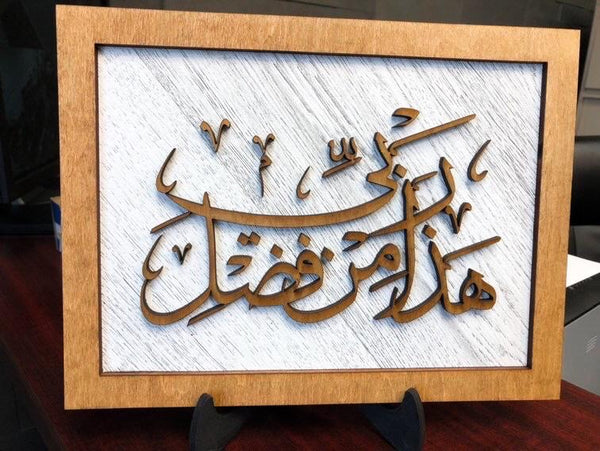 هَذَا مِنْ فَضْلِ
رَبِّي